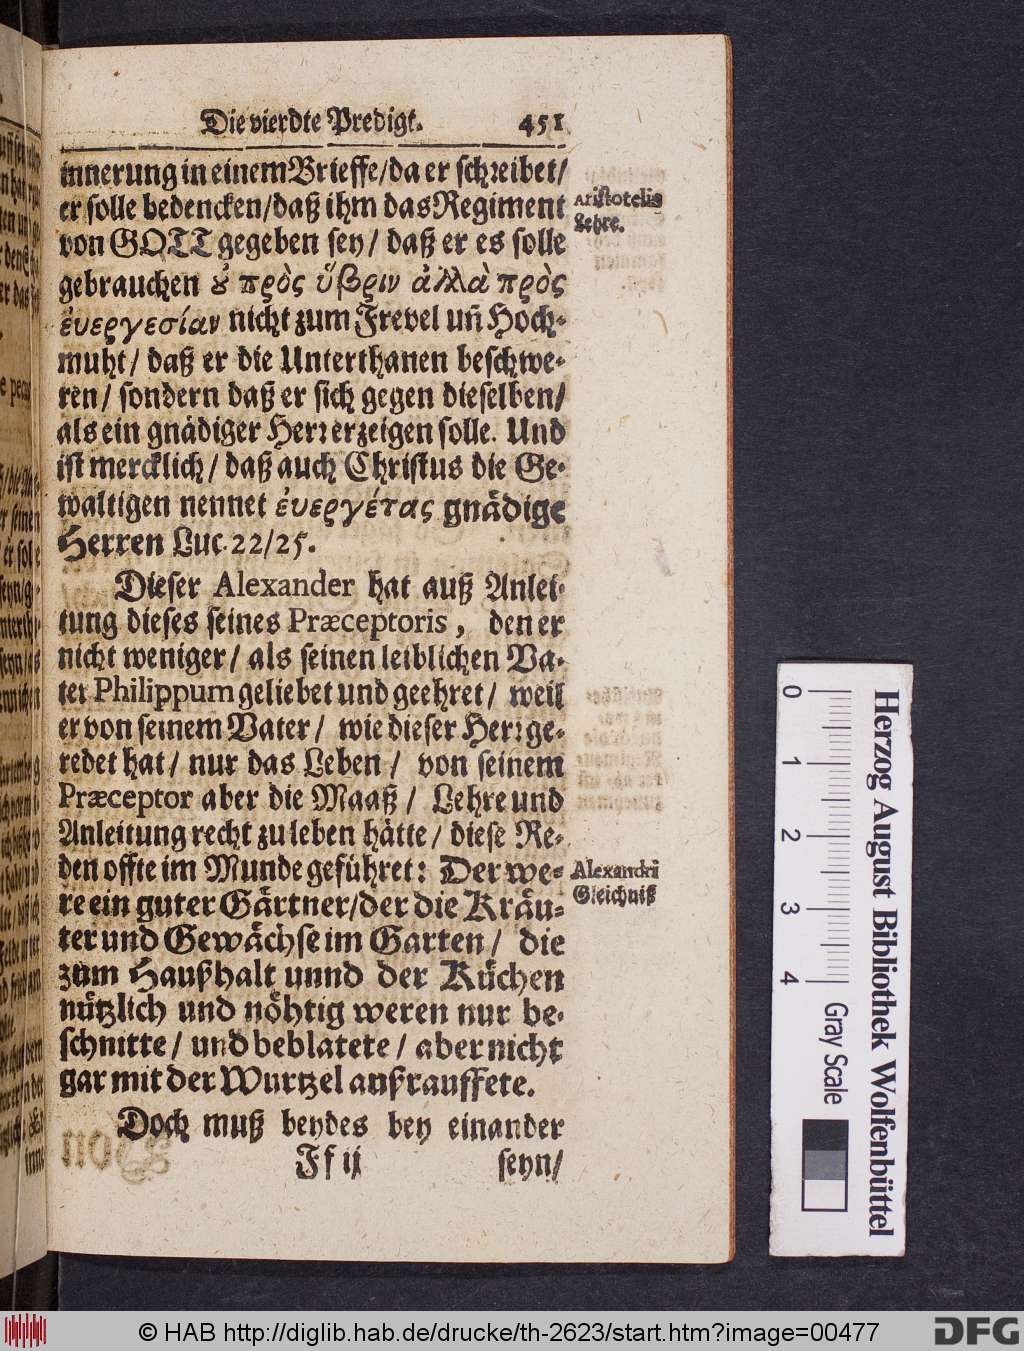 Die vierdte Predigt. 451
innerung in einem Brieffe/ da er schreibet/
er solle bedencken/ daß ihm das Regiment
von GOTT gegeben sey/ daß er es solle
gebrauchen ȣ̓ πρὸς ὕβριν ἀλλὰ πρὸς
ἐυεργεσίαν nicht zum Frevel uñ Hoch-
muht/ daß er die Unterthanen beschwe-
ren/ sondern daß er sich gegen dieselben/
als ein gnädiger Herr erzeigen solle. Und
ist mercklich/ daß auch Christus die Ge-
waltigen nennet ἐυεργέτας gnädige
Herren Luc. 22/25.
Aristotelis
Lehre.
Dieser Alexander hat auß Anlei-
tung dieses seines Præceptoris, den er
nicht weniger/ als seinen leiblichen Va-
ter Philippum geliebet und geehret/ weil
er von seinem Vater/ wie dieser Herr ge-
redet hat/ nur das Leben/ von seinem
Præceptor aber die Maaß/ Lehre und
Anleitung recht zu leben hätte/ diese Re-
den offte im Munde geführet: Der we-
re ein guter Gärtner/ der die Kräu-
ter und Gewächse im Garten/ die
zum Haußhalt unnd der Küchen
nützlich und nöhtig weren nur be-
schnitte/ und beblatete/ aber nicht
gar mit der Wurtzel außrauffete.
Alexandri
Gleichniß
Doch muß beydes bey einander
Ff ij seyn/
0 1 2 3 4
Herzog August Bibliothek Wolfenbüttel
Gray Scale
© HAB http://diglib.hab.de/drucke/th-2623/start.htm?image=00477
DFG